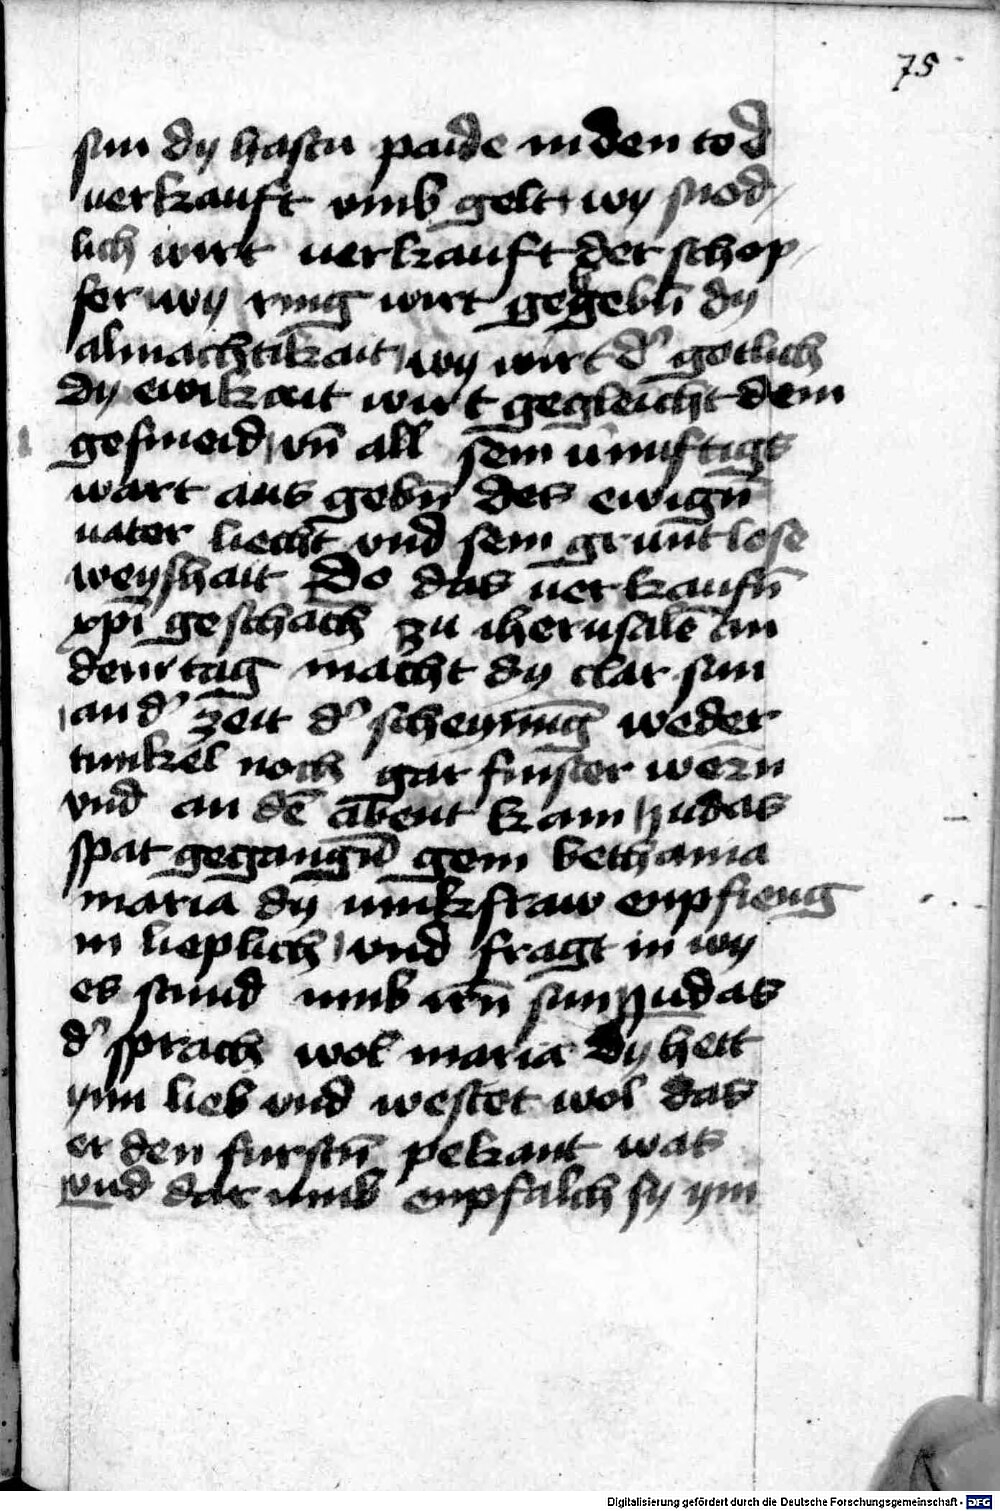 75
sun dy hastu paide in den tod
verkauft vmb gelt wy snod
lich wirt verkauft der schop
fer wy ring wirt gegebn̄ dy
almachtikait wy wirt d' gotlich
dy ewikait wirt gegleicht dem
gesmeid vn̄ all sein v̄nuftigs
wart aus gebn̄ des ewign̄
vater liecht vnd sein gruntlose
weyshait Do das verkaufn̄
xpī geschach zu iherusalē an
dem tag macht dy clar sun
an d' zeit d' scheynung weder
tunkel noch gar finster wern
vnd an dē abent kam Judas
spat gegangn̄ gein bethania
maria dy iunkfraw enpfieng
in lieplich vnd fragt in wy
es stund vmb irn̄ sun Judas
d' sprach wol maria dy hett
ynn lieb vnd westet wol das
er den furstn̄ pekant was
vnd dar vmb enpfalch sy ym
Digitalisierung gefördert durch die Deutsche Forschungsgemeinschaft - DFG